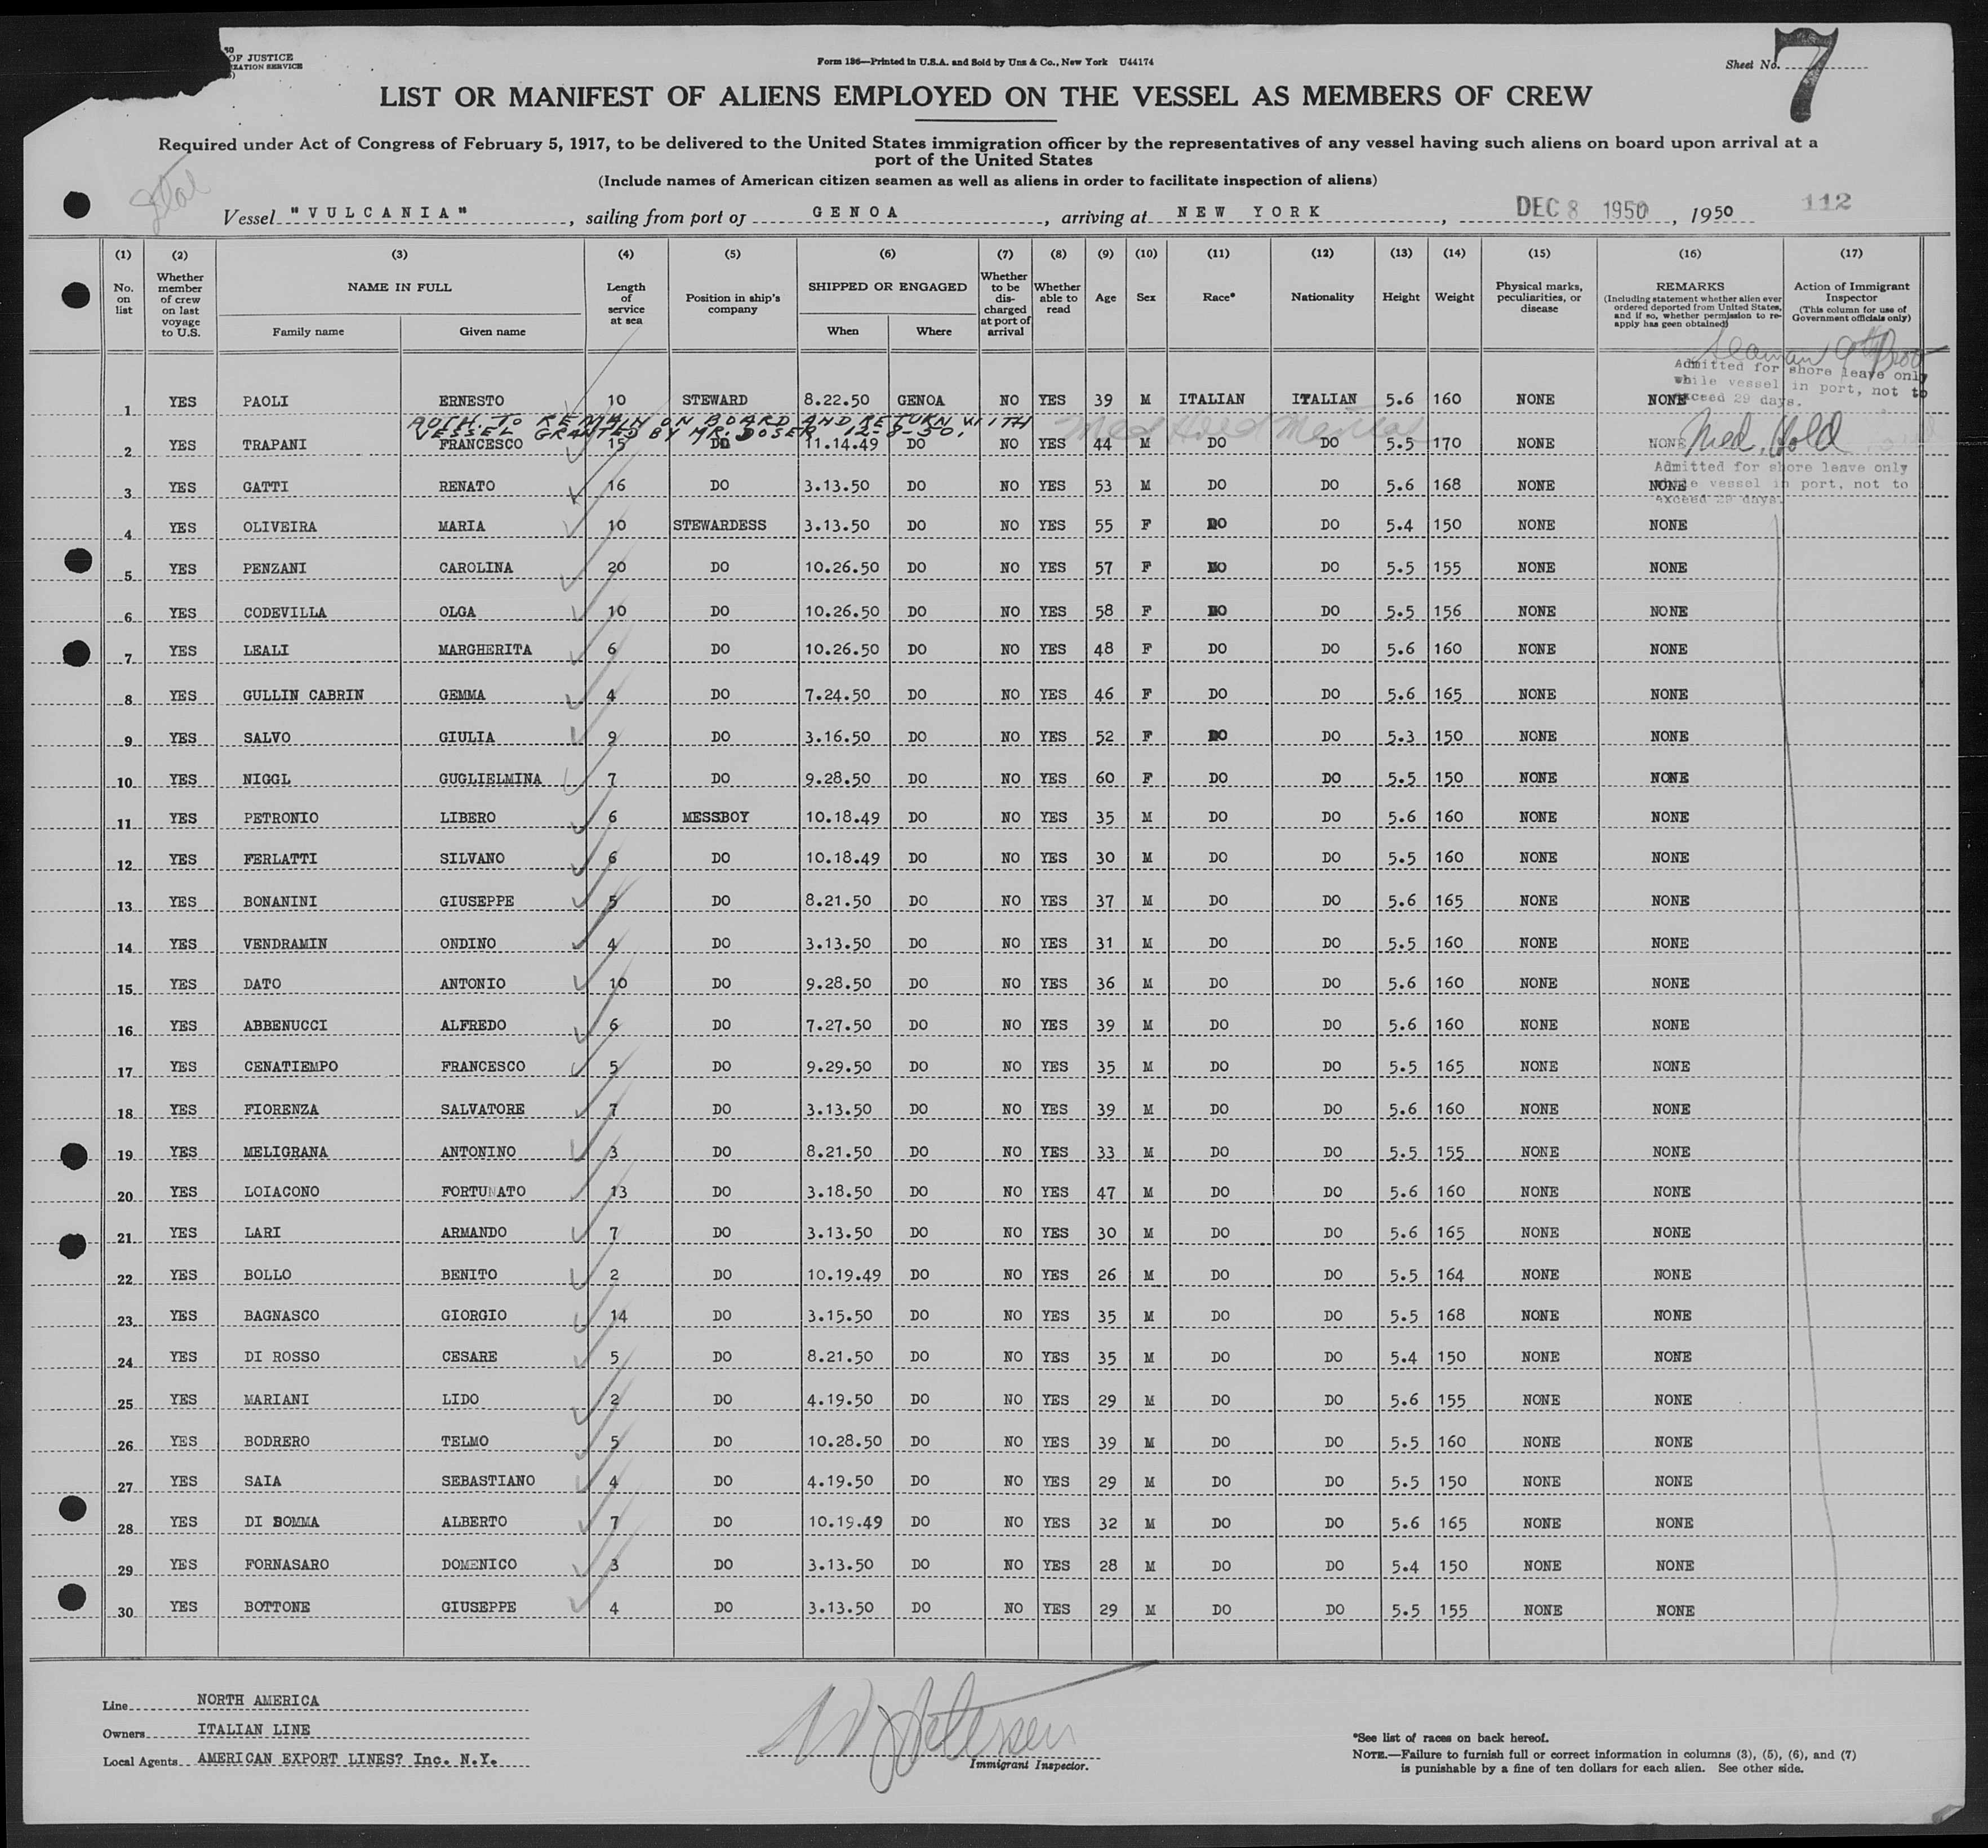 OF JUSTICE
ZATION SERVICE
Form 186—Printed in U.S.A. and Sold by Unz & Co., New York U44174
Sheet No. 7
LIST OR MANIFEST OF ALIENS EMPLOYED ON THE VESSEL AS MEMBERS OF CREW
Required under Act of Congress of February 5, 1917, to be delivered to the United States immigration officer by the representatives of any vessel having such aliens on board upon arrival at a
port of the United States
(Include names of American citizen seamen as well as aliens in order to facilitate inspection of aliens)
Vessel "VULCANIA", sailing from port of GENOA, arriving at NEW YORK, DEC 8 1950, 1950 112
(1) (2) (3) (4) (5) (6) (7) (8) (9) (10) (11) (12) (13) (14) (15) (16) (17)
No. on list Whether member of crew on last voyage to U.S. NAME IN FULL Family name Given name Length of service at sea Position in ship's company SHIPPED OR ENGAGED When Where Whether to be discharged at port of arrival Whether able to read Age Sex Race* Nationality Height Weight Physical marks, peculiarities, or disease REMARKS (Including statement whether alien ever ordered deported from United States, and if so, whether permission to reapply has geen obtained) Action of Immigrant Inspector (This column for use of Government officials only)
Seaman
Admitted for shore leave only
while vessel in port, not to
exceed 29 days.
1 YES PAOLI ERNESTO 10 STEWARD 8.22.50 GENOA NO YES 39 M ITALIAN ITALIAN 5.6 160 NONE NONE
AUTH. TO REMAIN ON BOARD AND RETURN WITH
VESSEL GRANTED BY MR. DOSER 12-8-50.
Med Hold Mental
2 YES TRAPANI FRANCESCO 15 DO 11.14.49 DO NO YES 44 M DO DO 5.5 170 NONE NONE Med. Hold
Admitted for shore leave only
while vessel in port, not to
exceed 29 days.
3 YES GATTI RENATO 16 DO 3.13.50 DO NO YES 53 M DO DO 5.6 168 NONE NONE
4 YES OLIVEIRA MARIA 10 STEWARDESS 3.13.50 DO NO YES 55 F DO DO 5.4 150 NONE NONE
5 YES PENZANI CAROLINA 20 DO 10.26.50 DO NO YES 57 F DO DO 5.5 155 NONE NONE
6 YES CODEVILLA OLGA 10 DO 10.26.50 DO NO YES 58 F DO DO 5.5 156 NONE NONE
7 YES LEALI MARGHERITA 6 DO 10.26.50 DO NO YES 48 F DO DO 5.6 160 NONE NONE
8 YES GULLIN CABRIN GEMMA 4 DO 7.24.50 DO NO YES 46 F DO DO 5.6 165 NONE NONE
9 YES SALVO GIULIA 9 DO 3.16.50 DO NO YES 52 F DO DO 5.3 150 NONE NONE
10 YES NIGGL GUGLIELMINA 7 DO 9.28.50 DO NO YES 60 F DO DO 5.5 150 NONE NONE
11 YES PETRONIO LIBERO 6 MESSBOY 10.18.49 DO NO YES 35 M DO DO 5.6 160 NONE NONE
12 YES FERLATTI SILVANO 6 DO 10.18.49 DO NO YES 30 M DO DO 5.5 160 NONE NONE
13 YES BONANINI GIUSEPPE 5 DO 8.21.50 DO NO YES 37 M DO DO 5.6 165 NONE NONE
14 YES VENDRAMIN ONDINO 4 DO 3.13.50 DO NO YES 31 M DO DO 5.5 160 NONE NONE
15 YES DATO ANTONIO 10 DO 9.28.50 DO NO YES 36 M DO DO 5.6 160 NONE NONE
16 YES ABBENUCCI ALFREDO 6 DO 7.27.50 DO NO YES 39 M DO DO 5.6 160 NONE NONE
17 YES CENATIEMPO FRANCESCO 5 DO 9.29.50 DO NO YES 35 M DO DO 5.5 165 NONE NONE
18 YES FIORENZA SALVATORE 7 DO 3.13.50 DO NO YES 39 M DO DO 5.6 160 NONE NONE
19 YES MELIGRANA ANTONINO 3 DO 8.21.50 DO NO YES 33 M DO DO 5.5 155 NONE NONE
20 YES LOIACONO FORTUNATO 13 DO 3.18.50 DO NO YES 47 M DO DO 5.6 160 NONE NONE
21 YES LARI ARMANDO 7 DO 3.13.50 DO NO YES 30 M DO DO 5.6 165 NONE NONE
22 YES BOLLO BENITO 2 DO 10.19.49 DO NO YES 26 M DO DO 5.5 164 NONE NONE
23 YES BAGNASCO GIORGIO 14 DO 3.15.50 DO NO YES 35 M DO DO 5.5 168 NONE NONE
24 YES DI ROSSO CESARE 5 DO 8.21.50 DO NO YES 35 M DO DO 5.4 150 NONE NONE
25 YES MARIANI LIDO 2 DO 4.19.50 DO NO YES 29 M DO DO 5.6 155 NONE NONE
26 YES BODRERO TELMO 5 DO 10.28.50 DO NO YES 39 M DO DO 5.5 160 NONE NONE
27 YES SAIA SEBASTIANO 4 DO 4.19.50 DO NO YES 29 M DO DO 5.5 150 NONE NONE
28 YES DI SOMMA ALBERTO 7 DO 10.19.49 DO NO YES 32 M DO DO 5.6 165 NONE NONE
29 YES FORNASARO DOMENICO 3 DO 3.13.50 DO NO YES 28 M DO DO 5.4 150 NONE NONE
30 YES BOTTONE GIUSEPPE 4 DO 3.13.50 DO NO YES 29 M DO DO 5.5 155 NONE NONE
Line NORTH AMERICA
Owners ITALIAN LINE
Local Agents AMERICAN EXPORT LINES? Inc. N.Y.
Immigrant Inspector.
*See list of races on back hereof.
NOTE.—Failure to furnish full or correct information in columns (3), (5), (6), and (7)
is punishable by a fine of ten dollars for each alien. See other side.